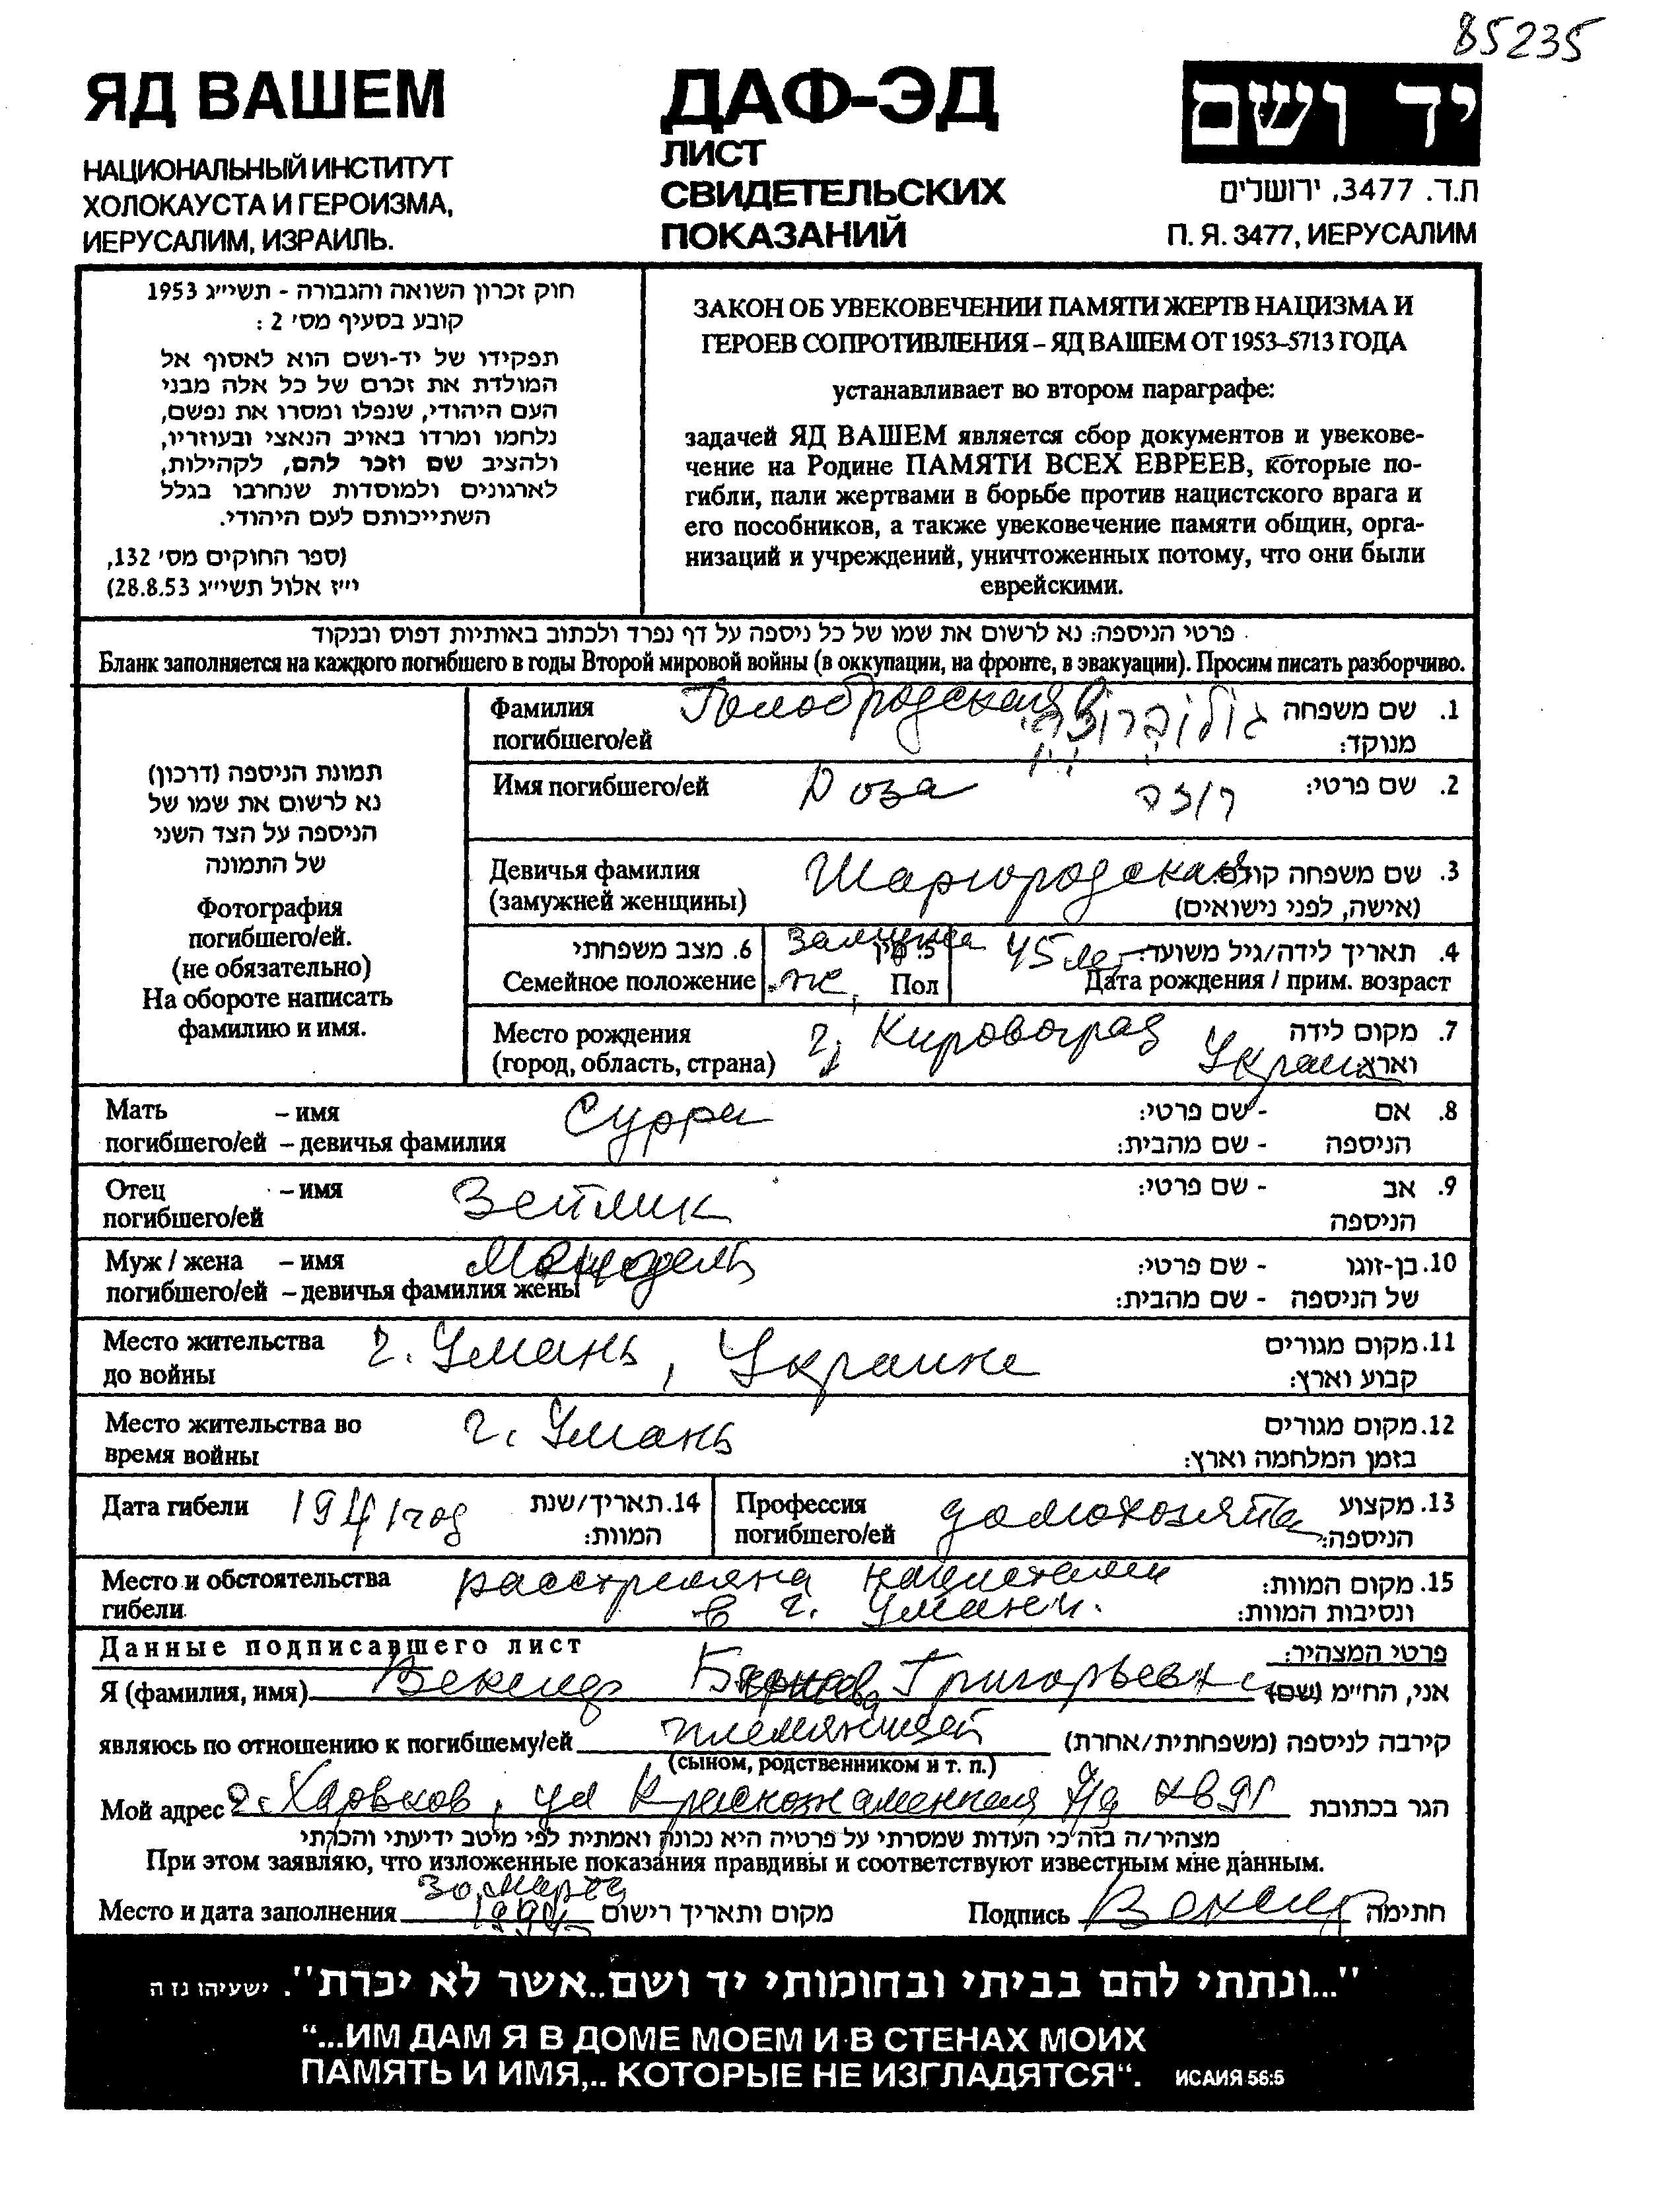 85235
ЯД ВАШЕМ
НАЦИОНАЛЬНЫЙ ИНСТИТУТ
ХОЛОКАУСТА И ГЕРОИЗМА,
ИЕРУСАЛИМ, ИЗРАИЛЬ.
ДАФ-ЭД
ЛИСТ
СВИДЕТЕЛЬСКИХ
ПОКАЗАНИЙ
יד ושם
ת.ד. 3477, ירושלים
П. Я. 3477, ИЕРУСАЛИМ
חוק זכרון השואה והגבורה - תשי״ג 1953
קובע בסעיף מס׳ 2 :
תפקידו של יד-ושם הוא לאסוף אל
המולדת את זכרם של כל אלה מבני
העם היהודי, שנפלו ומסרו את נפשם,
נלחמו ומרדו באויב הנאצי ובעוזריו,
ולהציב שם וזכר להם, לקהילות,
לארגונים ולמוסדות שנחרבו בגלל
השתייכותם לעם היהודי.
(ספר החוקים מס׳ 132,
י״ז אלול תשי״ג 28.8.53)
ЗАКОН ОБ УВЕКОВЕЧЕНИИ ПАМЯТИ ЖЕРТВ НАЦИЗМА И
ГЕРОЕВ СОПРОТИВЛЕНИЯ – ЯД ВАШЕМ ОТ 1953–5713 ГОДА
устанавливает во втором параграфе:
задачей ЯД ВАШЕМ является сбор документов и увекове-
чение на Родине ПАМЯТИ ВСЕХ ЕВРЕЕВ, которые по-
гибли, пали жертвами в борьбе против нацистского врага и
его пособников, а также увековечение памяти общин, орга-
низаций и учреждений, уничтоженных потому, что они были
еврейскими.
פרטי הניספה: נא לרשום את שמו של כל ניספה על דף נפרד ולכתוב באותיות דפוס ובנקוד
Бланк заполняется на каждого погибшего в годы Второй мировой войны (в оккупации, на фронте, в эвакуации). Просим писать разборчиво.
תמונת הניספה (דרכון)
נא לרשום את שמו של
הניספה על הצד השני
של התמונה
Фотография
погибшего/ей.
(не обязательно)
На обороте написать
фамилию и имя.
Фамилия Голобродская 1. שם משפחה
погибшего/ей מנוקד:
Имя погибшего/ей Роза רוזה 2. שם פרטי:
Девичья фамилия Шаргородская 3. שם משפחה קודם:
(замужней женщины) (אישה, לפני נישואים)
6. מצב משפחתי замужем 5. מין 45 лет 4. תאריך לידה/גיל משוער:
Семейное положение Пол ж. Дата рождения / прим. возраст
Место рождения г. Кировоград 7. מקום לידה
(город, область, страна) Украина וארץ
Мать – имя Сурра - שם פרטי: 8. אם
погибшего/ей – девичья фамилия - שם מהבית: הניספה
Отец – имя Зейлик - שם פרטי: 9. אב
погибшего/ей הניספה
Муж / жена – имя - שם פרטי: 10. בן-זוגו
погибшего/ей – девичья фамилия жены - שם מהבית: של הניספה
Место жительства г. Умань, Украине 11. מקום מגורים
до войны קבוע וארץ:
Место жительства во г. Умань 12. מקום מגורים
время войны בזמן המלחמה וארץ:
Дата гибели 1941 год 14. תאריך/שנת
המוות:
Профессия домохозяйка 13. מקצוע
погибшего/ей הניספה:
Место и обстоятельства расстреляна нацистами 15. מקום המוות:
гибели. в г. Умани. ונסיבות המוות:
Данные подписавшего лист פרטי המצהיר:
Я (фамилия, имя) Векслер Григорьевна אני, החי״מ (שם)
являюсь по отношению к погибшему/ей племянницей קירבה לניספה (משפחתית/אחרת)
(сыном, родственником и т. п.)
Мой адрес г. Харьков, ул Краснознаменная кв 91 הגר בכתובת
מצהיר/ה בזה כי העדות שמסרתי על פרטיה היא נכונה ואמתית לפי מיטב ידיעתי והכרתי
При этом заявляю, что изложенные показания правдивы и соответствуют известным мне данным.
30 марта
Место и дата заполнения מקום ותאריך רישום Подпись Векслер חתימה
"...ונתתי להם בביתי ובחומותי יד ושם..אשר לא יכרת". ישעיהו נז ה
“...ИМ ДАМ Я В ДОМЕ МОЕМ И В СТЕНАХ МОИХ
ПАМЯТЬ И ИМЯ,.. КОТОРЫЕ НЕ ИЗГЛАДЯТСЯ“. ИСАИЯ 56:5